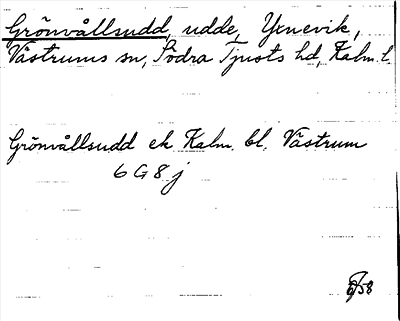 Grönvållsudd, udde, Yxnevik,
Västrums sn, Södra Tjusts hd, Kalm. l.
Grönvållsudd ek. Kalm. bl. Västrum
6 G 8 j
58